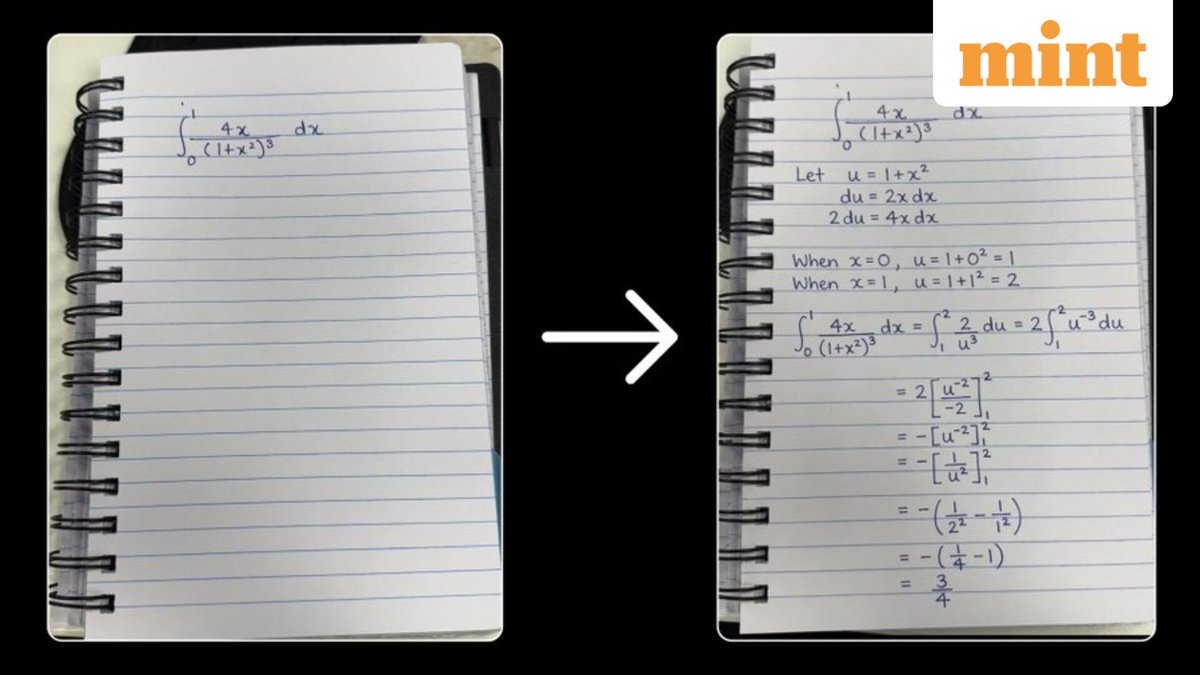 ∫₀¹ 4x/(1+x²)³ dx
mint
∫₀¹ 4x/(1+x²)³ dx
Let u = 1+x²
du = 2x dx
2 du = 4x dx
When x=0, u = 1+0² = 1
When x=1, u = 1+1² = 2
∫₀¹ 4x/(1+x²)³ dx = ∫₁² 2/u³ du = 2∫₁² u⁻³ du
= 2[u⁻²/-2]₁²
= -[u⁻²]₁²
= -[1/u²]₁²
= -(1/2² - 1/1²)
= -(1/4 - 1)
= 3/4